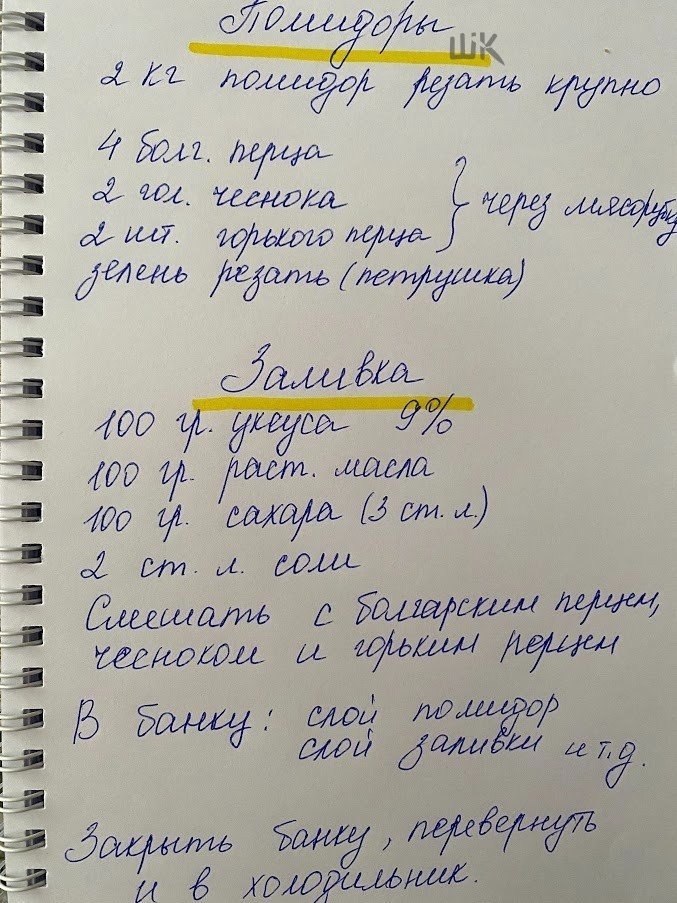 Помидоры
WK
2 кг помидор резать крупно
4 болг. перца
2 гол. чеснока
2 шт. горького перца
} через мясорубку
зелень резать (петрушка)
Заливка
100 гр. уксуса 9%
100 гр. раст. масла
100 гр. сахара (3 ст. л.)
2 ст. л. соли
Смешать с болгарским перцем,
чесноком и горьким перцем
В банку: слой помидор
слой заливки и т.д.
Закрыть банку, перевернуть
и в холодильник.